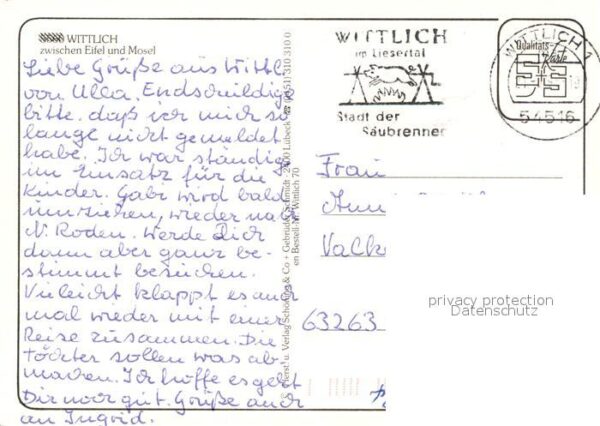 WITTLICH
zwischen Eifel und Mosel
Liebe Grüße aus Wittl.
von Ulla. Entschuldige
bitte. daß ich mich so
lange nicht gemeldet
habe. Ich war ständig
im Einsatz für die
Kinder. Gabi wird bald
umziehen, wieder nach
N. Roden. Werde Dich
dann aber ganz be-
stimmt besuchen.
Vielleicht klappt es auch
mal wieder mit einer
Reise zusammen. Die
Töchter sollen was ab-
machen. Ich hoffe es geht
Dir noch gut. Grüße auch
an Ingrid.
Verlag Schöning & Co + Gebrüder Schmidt - 2400 Lübeck ☎ (0451) 310 310 0
Bestell-Nr. Wittlich 70
WITTLICH
im Liesertal
Stadt der
Säubrenner
WITTLICH 1
54516
Qualitäts-
Karte
Frau
Ann
Valk
63263
privacy protection
Datenschutz